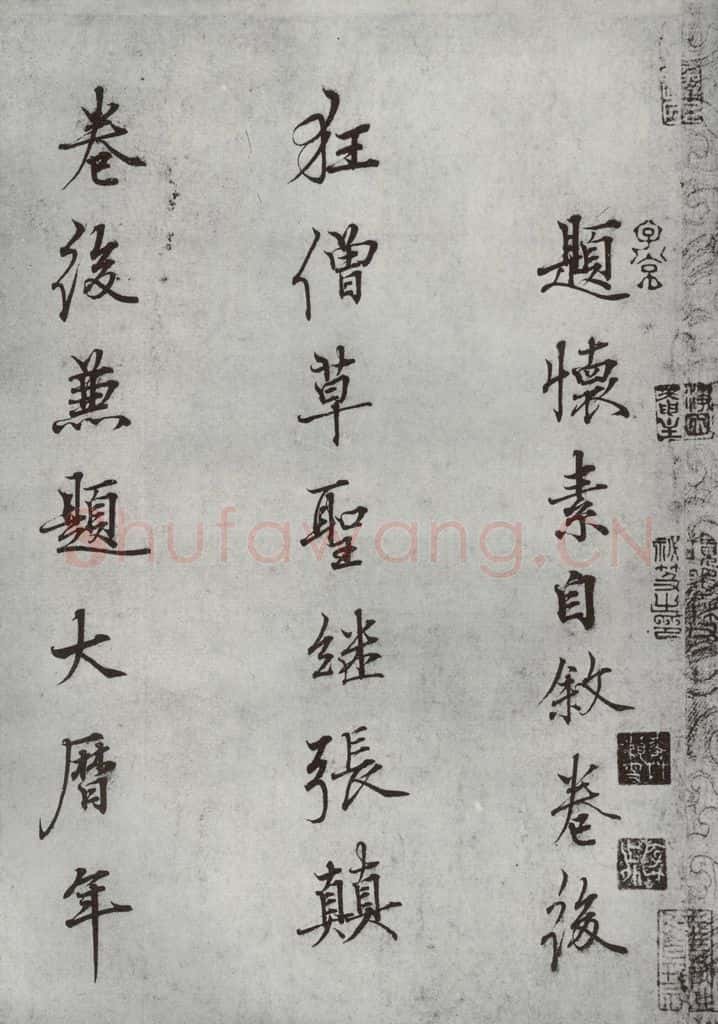 題懷素自敘卷後
狂僧草聖繼張顛
卷後兼題大曆年
shufawang.CN